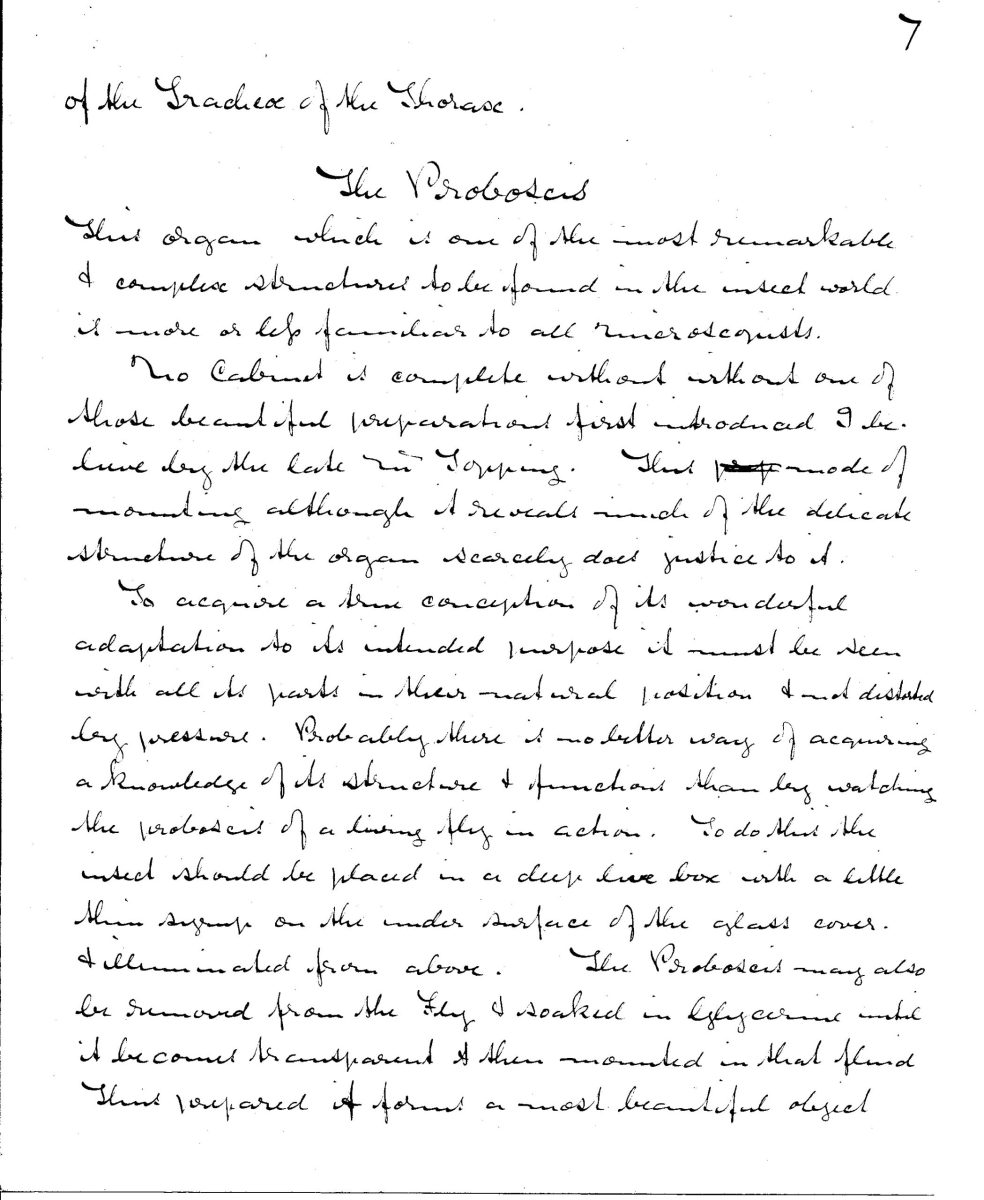 7
of the Tracheæ of the Thorax.
The Proboscis
This organ which is one of the most remarkable
& complex structures to be found in the insect world
is more or less familiar to all microscopists.
No Cabinet is complete without without one of
those beautiful preparations first introduced I be-
lieve by the late Mr Topping. This prep mode of
mounting although it reveals much of the delicate
structure of the organ scarcely does justice to it.
To acquire a true conception of its wonderful
adaptation to its intended purpose it must be seen
with all its parts in their natural position & not distorted
by pressure. Probably there is no better way of acquiring
a knowledge of its structure & functions than by watching
the proboscis of a living fly in action. To do this the
insect should be placed in a deep live box with a little
thin syrup on the under surface of the glass cover.
& illuminated from above. The Proboscis may also
be removed from the Fly & soaked in Glycerine until
it becomes transparent & then mounted in that fluid
Thus prepared it forms a most beautiful object